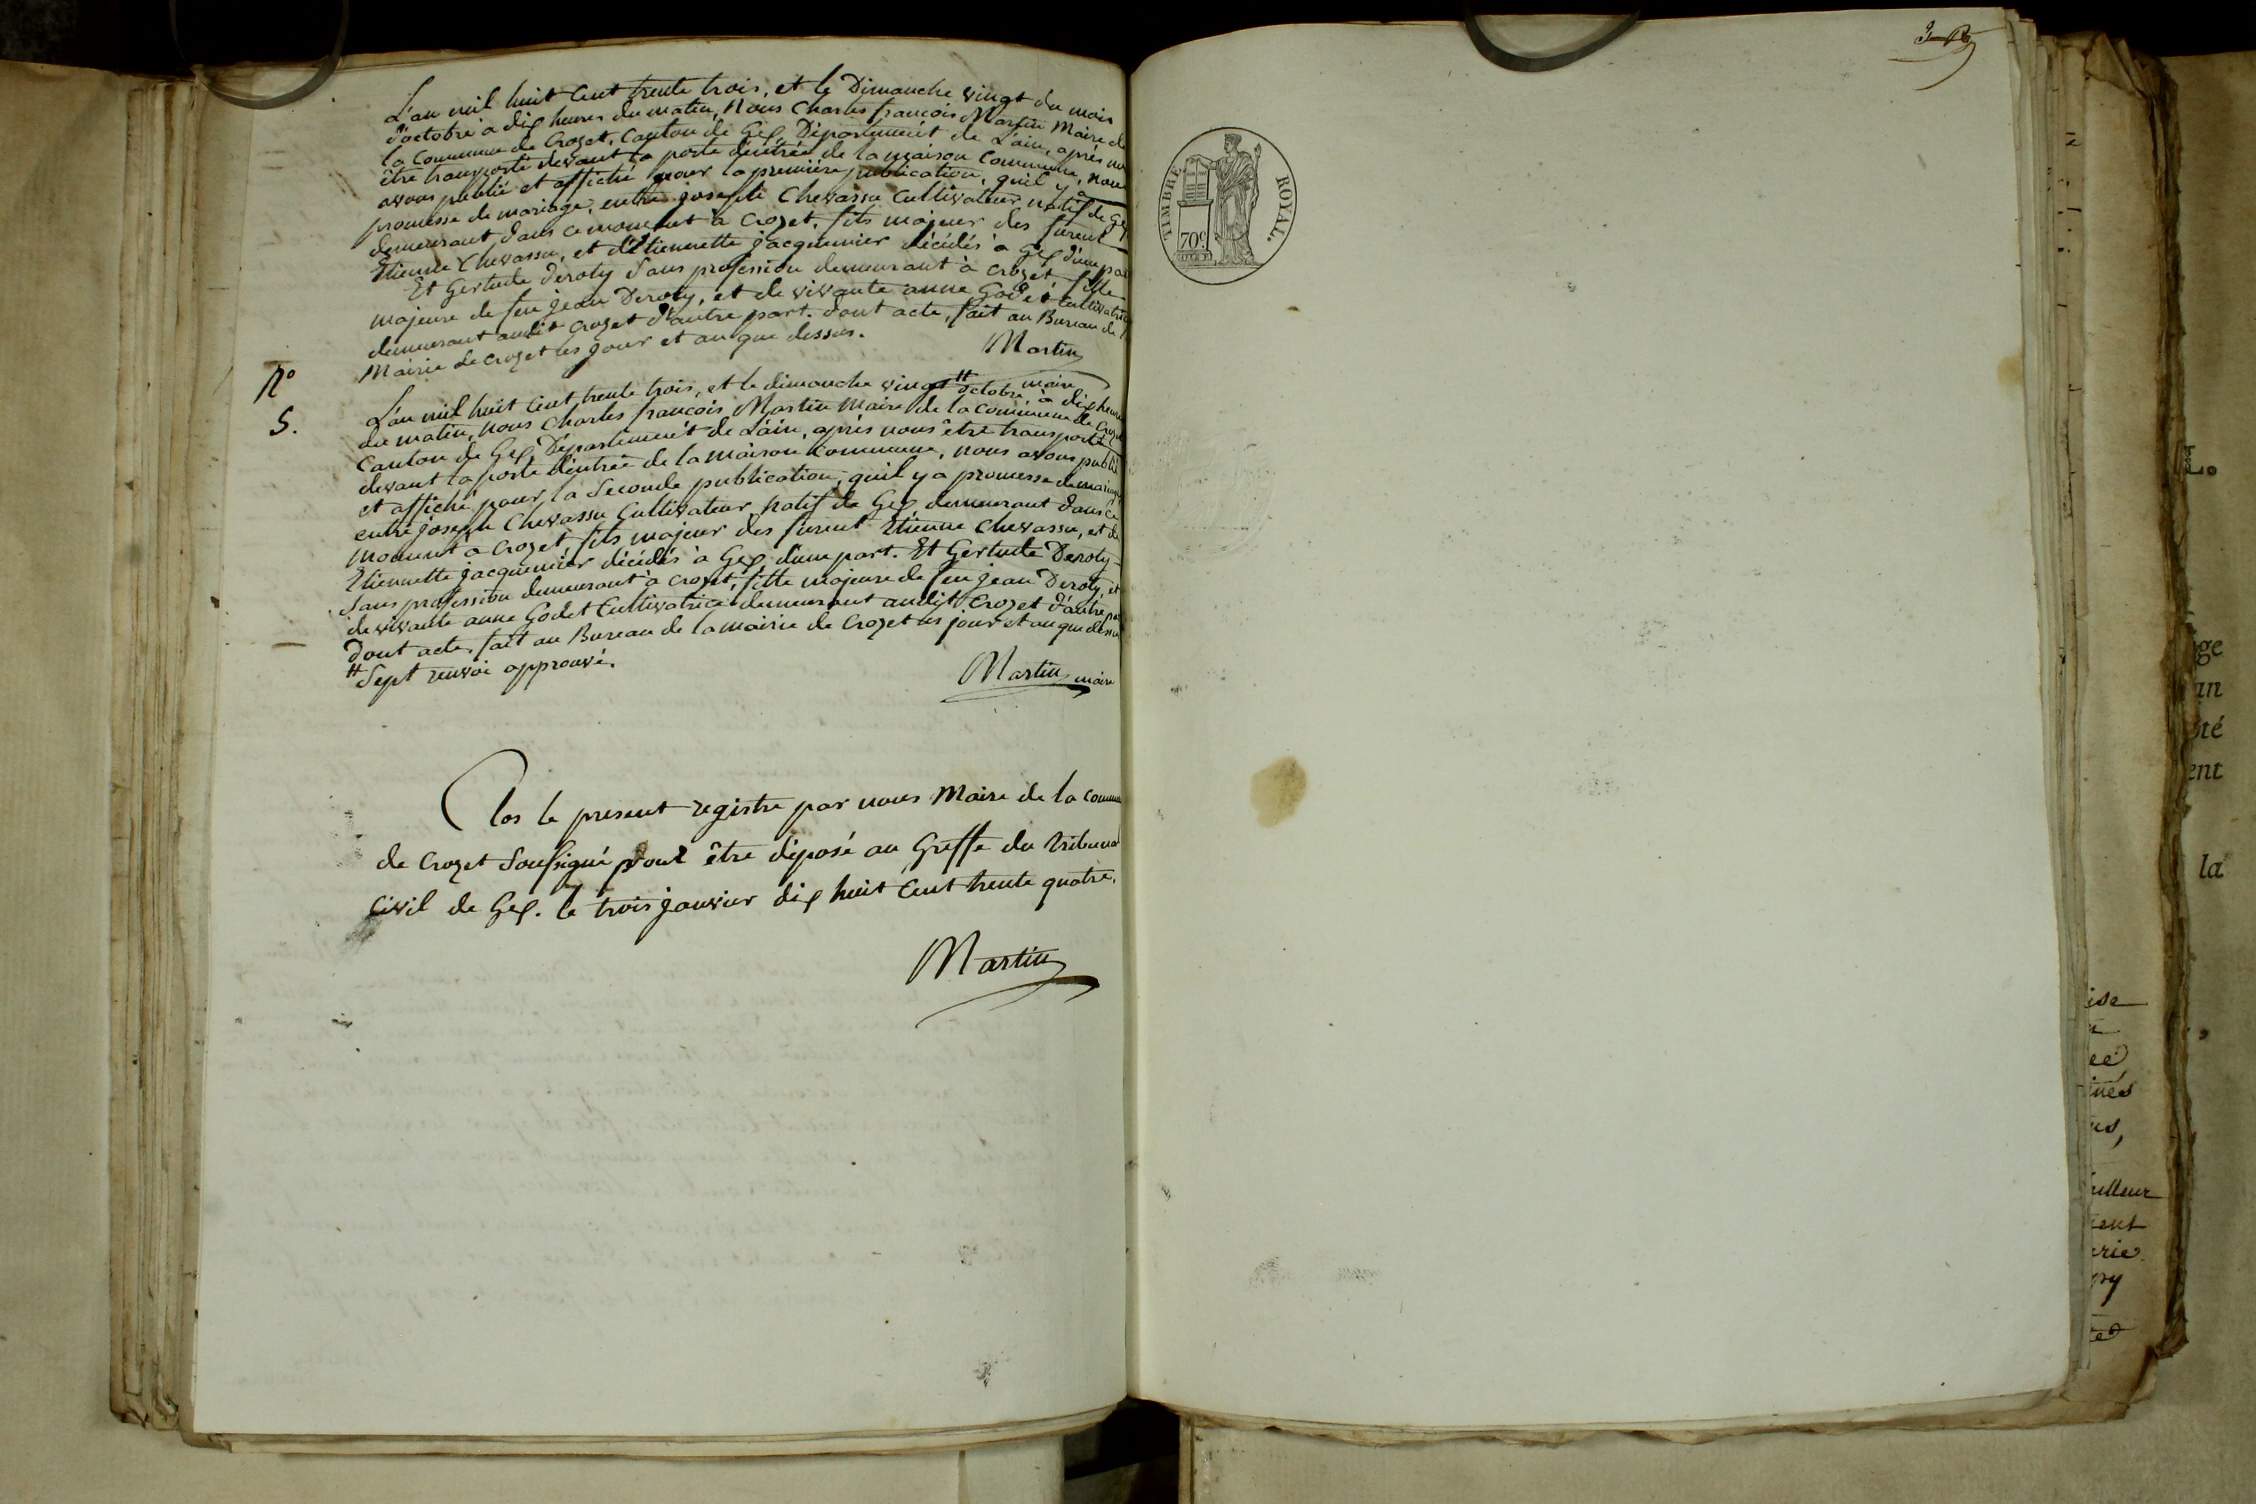 L'an mil huit cent trente trois, et le Dimanche vingt du mois
d'octobre à dix heures du matin, Nous Charles françois Martin Maire de
la Commune de Crozet, Canton de Gex, Département de L'ain, après nous
être transporté devant la porte d'entrée de la maison Commune, nous
avons publié et affiché pour la première publication, quil y a
promesse de mariage, entre joseph Chevassu Cultivateur natif de Gex
demeurant dans ce moment à Crozet, fils majeur des furent
Etienne Chevassu, et d'Etiennette jacquemier décédés à Gex d'une part
Et Gertude Deroty Sans profession demeurant à Crozet fille
majeure de feu jean Deroty, et de vivante anne Godet Cultivatrice
demeurant audit Crozet d'autre part. dont acte, fait au Bureau de la
Mairie de Crozet les jour et an que dessus.
Martin
maire
N°
5.
L'an mil huit Cent trente trois, et le dimanche vingt # octobre, à dix heures
du matin, nous Charles françois Martin Maire de la Commune de Crozet
Canton de Gex, Département de L'ain, après nous être transporté
devant la porte d'entrée de la maison Commune, nous avons publié
et affiché pour la Seconde publication, quil y a promesse de mariage
entre joseph Chevassu Cultivateur, natif de Gex, demeurant dans ce
moment à Crozet, fils majeur des furent Etienne Chevassu, et de
Etiennette jacquemier décédés à Gex, d'une part. Et Gertude Deroty
Sans profession demeurant à Crozet, fille majeure de feu jean Deroty, et
de vivante anne Godet Cultivatrice demeurant audit Crozet d'autre part
Dont acte, fait au Bureau de la mairie de Crozet les jour et an que dessus
# Sept renvoi approuvé.
Martin maire
Clos le present registre par nous Maire de la Commune
de Crozet Soussigné pour être déposé au Greffe du tribunal
Civil de Gex. le trois janvier dix huit Cent trente quatre.
Martin
TIMBRE ROYAL.
70c
ise
ee
ues,
ailleur
ient
rie
ge
an
té
ent
la